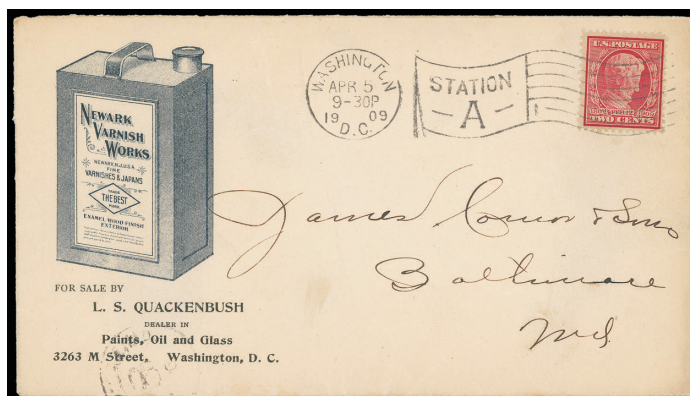 NEWARK
VARNISH
WORKS
NEWARK, N.J. U.S.A.
FINE
VARNISHES & JAPANS
TRADE
THE BEST
MARK
ENAMEL WOOD FINISH
EXTERIOR
WASHINGTON
APR 5
9-30P
19 09
D.C.
STATION
A
U.S. POSTAGE
TWO CENTS
James Connor & Sons
Baltimore
Md.
FOR SALE BY
L. S. QUACKENBUSH
DEALER IN
Paints, Oil and Glass
3263 M Street, Washington, D. C.